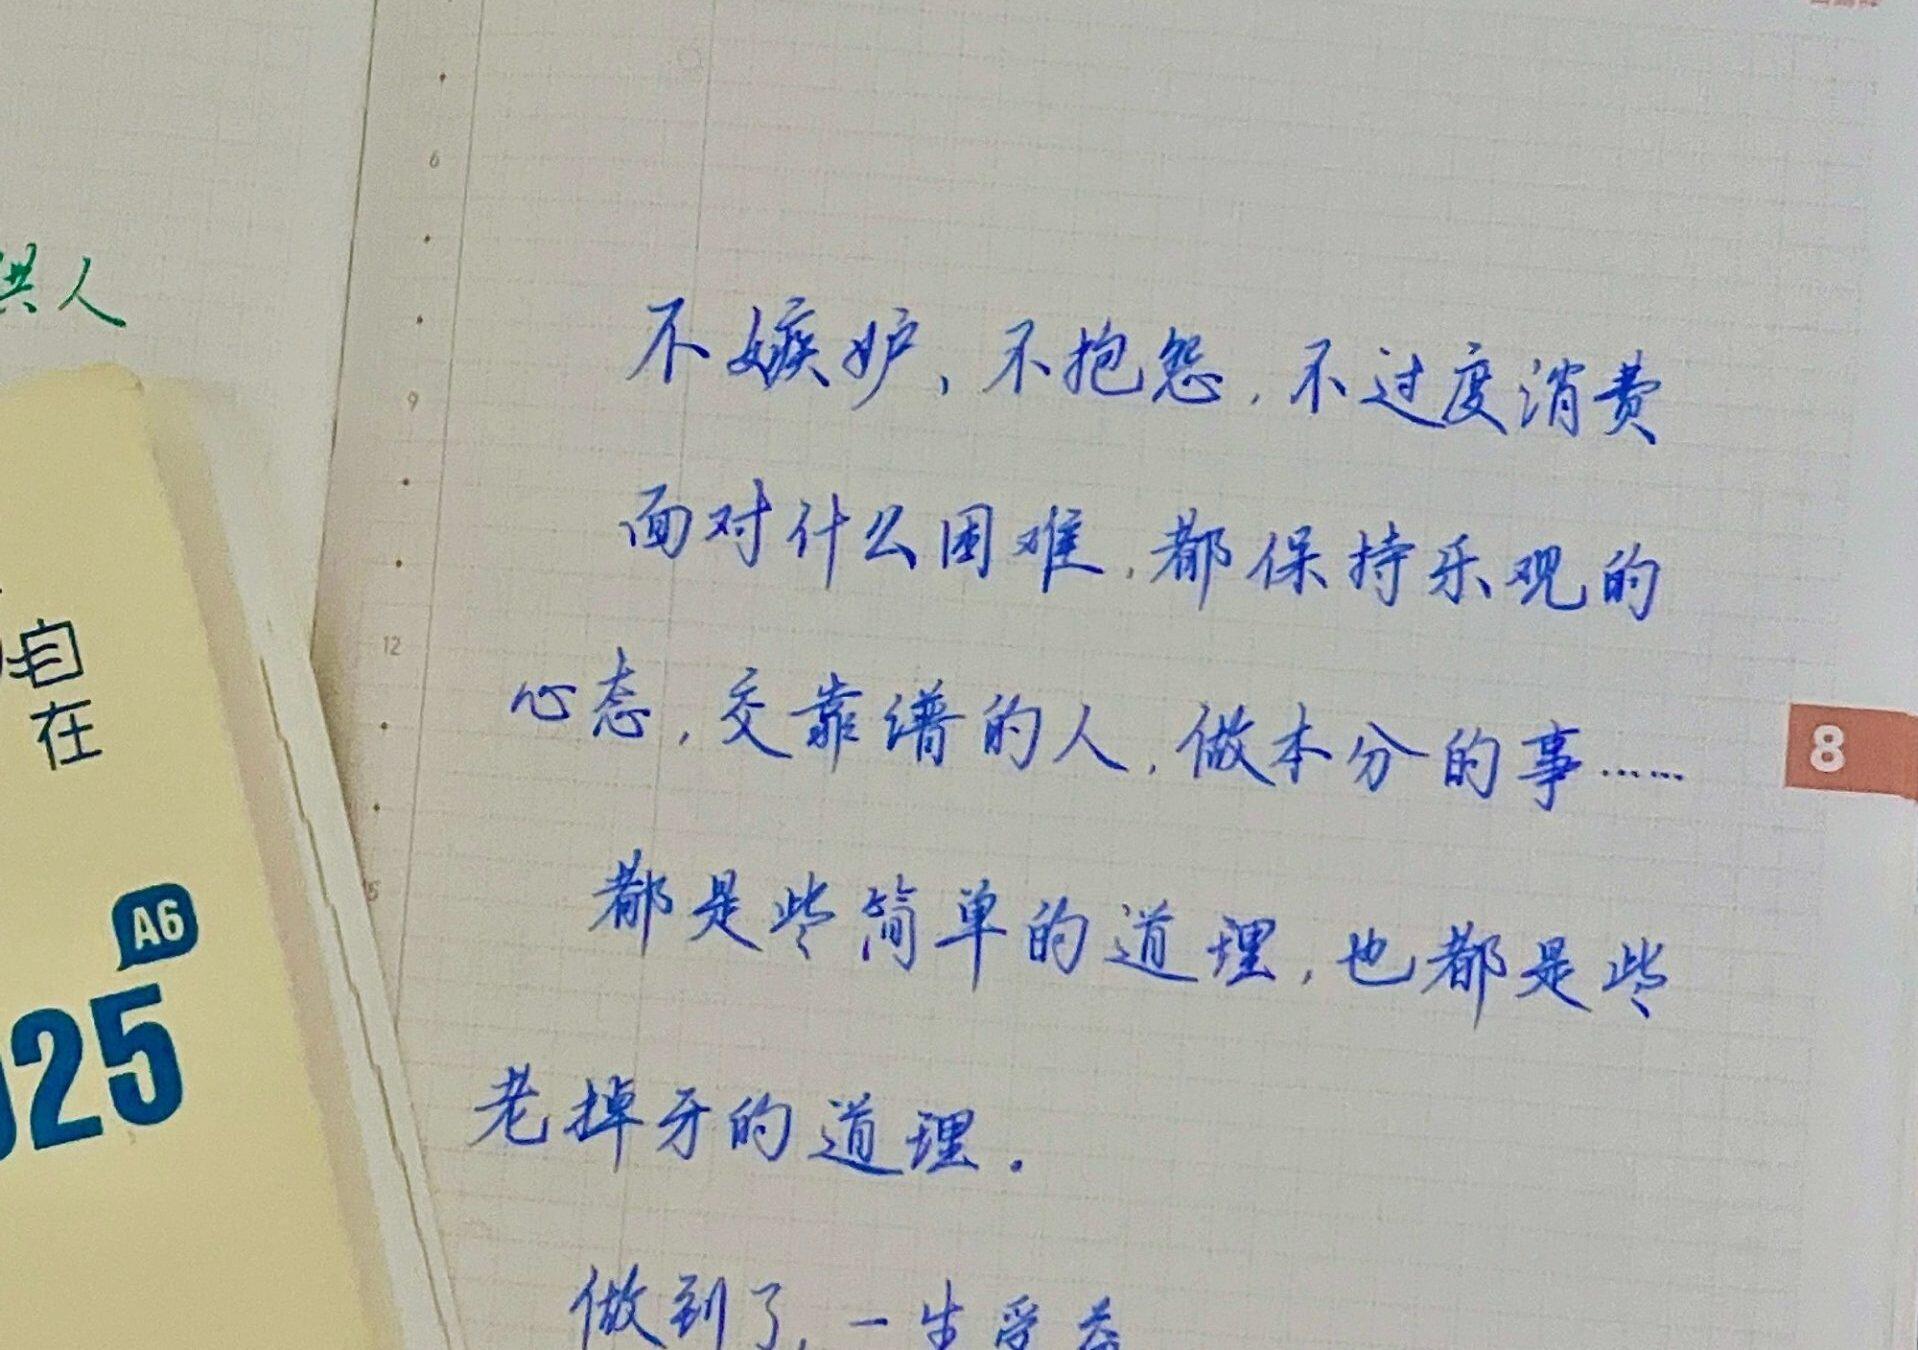 不嫉妒，不抱怨，不过度消费
面对什么困难，都保持乐观的
心态，交靠谱的人，做本分的事……
都是些简单的道理，也都是些
老掉牙的道理。
做到了，一生受益
人
自
在
A6
25
6
9
12
15
8